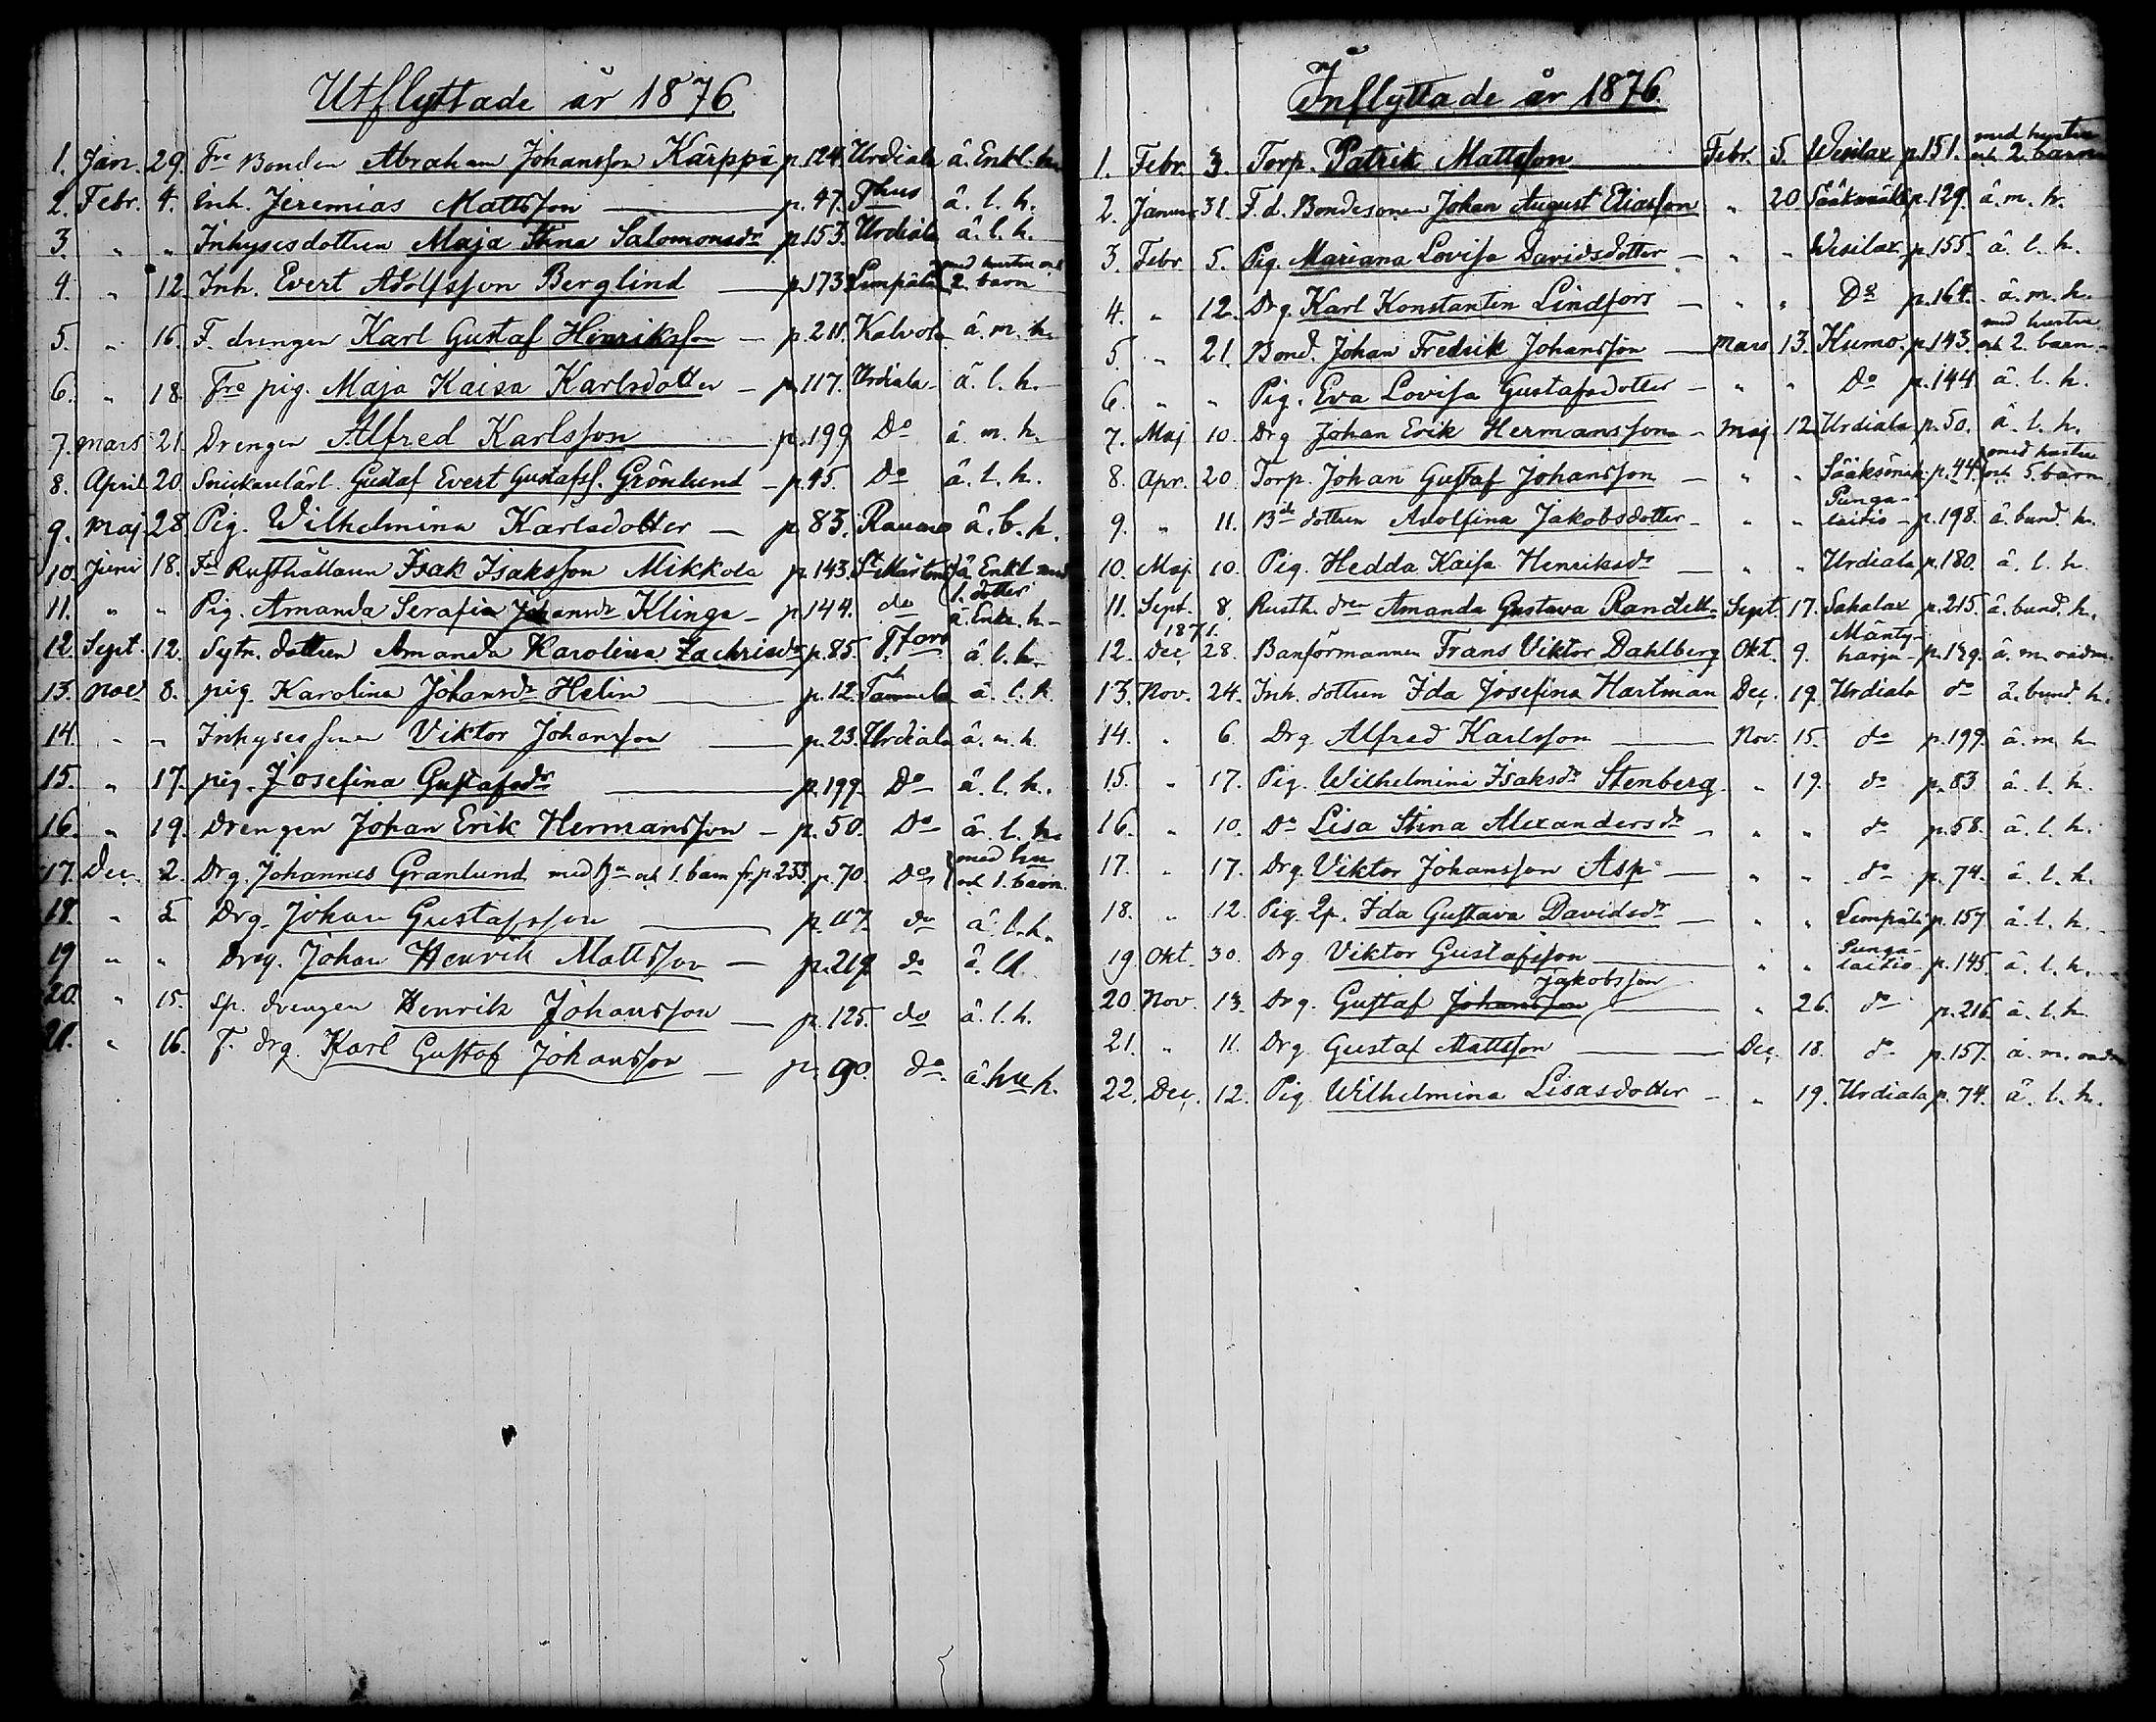 Utflyttade år 1876
1. Jan. 29. Fre Bonden Abraham Johansson Kärppä p.124. Urdiala ä. Enkl. h.
2. Febr. 4. Inh. Jeremias Mattsson — p. 47. Thus ä. l. h.
3. " " Inhysesdottren Maja Stina Salomonsdr p.153. Urdiala ä. l. h.
med hustru och
4. " 12. Inh. Evert Adolfsson Berglind — p.173. Lempäla 2. barn
5. " 16. F. drengen Karl Gustaf Henriksson — p.211. Kalvola ä. m. h.
6. " 18. Fre pig. Maja Kaisa Karlsdotter — p.117. Urdiala ä. l. h.
7. Mars 21. Drengen Alfred Karlsson — p.199 Do ä. m. h.
8. April 20. Snickarelärl. Gustaf Evert Gustafss. Grönlund — p.45. Do ä. l. h.
9. Maj 28. Pig. Wilhelmina Karlsdotter — p. 83. Raumo ä. b. h.
10. Juni 18. Fre Rusthållaren Isak Isaksson Mikkola p.143. St Mårtens ä. Enkl. med
1. dotter
11. " " Pig. Amanda Serafia Johansdr Klinga — p.144. do ä. Enk. h.
12. Sept. 12. Sytn. dottren Amanda Karolina Zachrisdr p. 85. T.fors ä. l. h.
13. Nov. 8. pig. Karolina Johansdr Helin — p.12. Tammela ä. l. h.
14. " " Inhysessonen Viktor Johansson — p.23. Urdiala ä. m. h.
15. " 17. pig. Josefina Gustafsdr — p.199. Do ä. l. h.
16. " 19. Drengen Johan Erik Hermansson — p. 50. Do ä. l. h.
17. Dec. 2. Drg. Johannes Granlund med hu och 1. barn fr. p. 233. p. 70. Do med hu
och 1. barn.
18. " 5 Drg. Johan Gustafsson — p. 117. do ä. l. h.
19 " " Drg. Johan Henrik Mattsson — p.219 do ä. l. h.
20. " 15. sp. drengen Henrik Johansson — p.125. do ä. l. h.
21. " 16. F. drg. Karl Gustaf Johansson — p. 90. do ä. hu h.
Inflyttade år 1876.
med hustru
1. Febr. 3. Torp. Patrik Mattsson — Febr. 5. Wesilax p.151. och 2. barn
2. Januari 31. F. d. Bondesonen Johan August Eliasson " 20. Sääksmäki p.129. ä. m. h.
3. Febr. 5. Pig. Mariana Lovisa Davidsdotter — " " Wesilax p.155. ä. l. h.
4. " 12. Drg. Karl Konstantin Lindfors — " " Do p.164. ä. m. h.
med hustru
5. " 21. Bond. Johan Fredrik Johansson — Mars 13. Kumo. p.143. och 2. barn
6. " " Pig. Eva Lovisa Gustafsdotter — " " Do p.144. ä. l. h.
7. Maj 10. Drg Johan Erik Hermansson — Maj 12. Urdiala p. 50. ä. l. h.
med hustru
8. Apr. 20. Torp. Johan Gustaf Johansson — " " Sääksmäk. p.44. och 5. barn
Punga-
9. " 11. Bde dottren Adolfina Jakobsdotter — " " laitio p.198. ä. bund. h.
10. Maj 10. Pig. Hedda Kaisa Henriksdr — " " Urdiala p.180. ä. l. h.
11. Sept. 8. Rusth. dren Amanda Gustava Randell Sept. 17. Sahalax p.215. ä. bund. h.
1871. Mänty-
12. Dec. 28. Banförmannen Frans Viktor Dahlberg Okt. 9. harju p.139. ä. m. vidm.
13. Nov. 24. Inh. dottren Ida Josefina Hartman Dec. 19. Urdiala do ä. bund. h.
14. " 6. Drg. Alfred Karlsson — Nov. 15. do p.199. ä. m. h.
15. " 17. Pig. Wilhelmina Isaksdr Stenberg " 19. do p. 83 ä. l. h.
16. " 10. Do Lisa Stina Alexandersdr — " " do p.58. ä. l. h.
17. " 17. Drg. Viktor Johansson Asp — " " do p. 74. ä. l. h.
18. " 12. Pig. Ida Gustava Davidsdr — " " Lempälä p.157 ä. l. h.
Punga-
19. Okt. 30. Drg. Viktor Gustafsson — " " laitio p.145. ä. l. h.
Jakobsson
20. Nov. 13. Drg. Gustaf Johansson — " 26. do p.216. ä. l. h.
21. " 11. Drg. Gustaf Mattsson — Dec. 18. do p.157. ä. m. vidm.
22. Dec. 12. Pig. Wilhelmina Lisasdotter — " 19. Urdiala p. 74. ä. l. h.